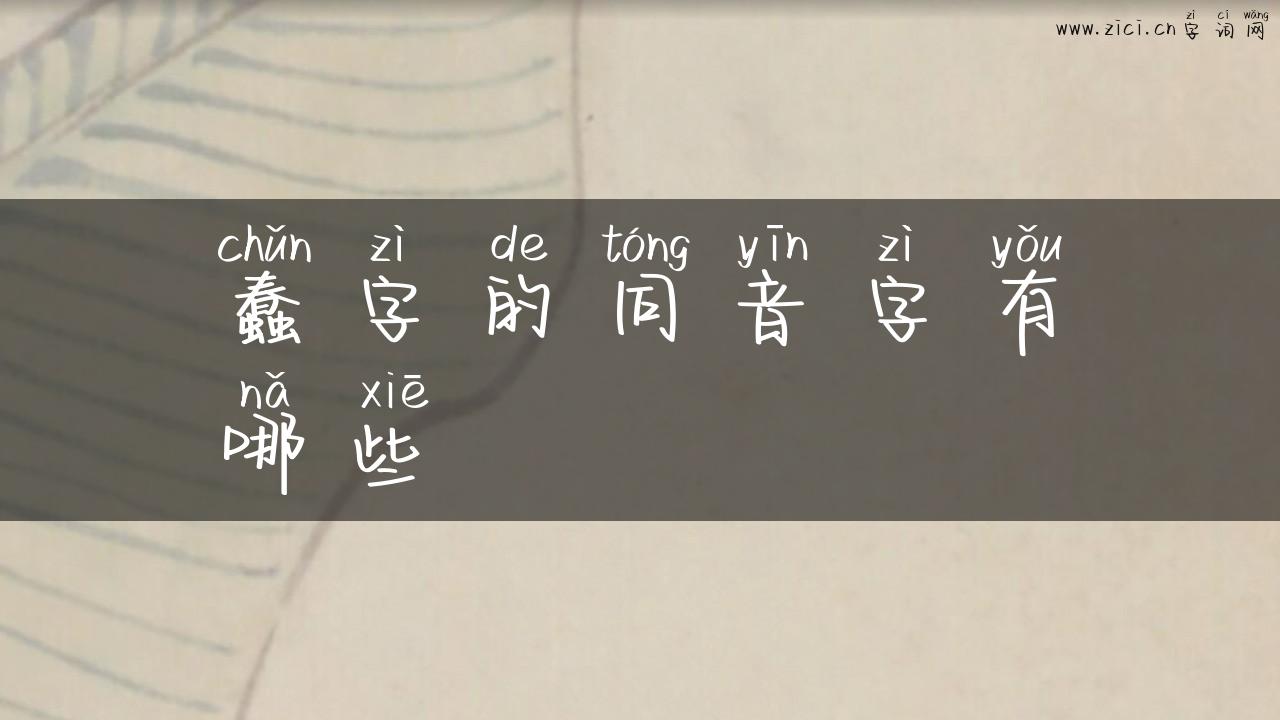 zì cí wǎng
www.zici.cn字词网
chǔn zì de tóng yīn zì yǒu
蠢字的同音字有
nǎ xiē
哪些